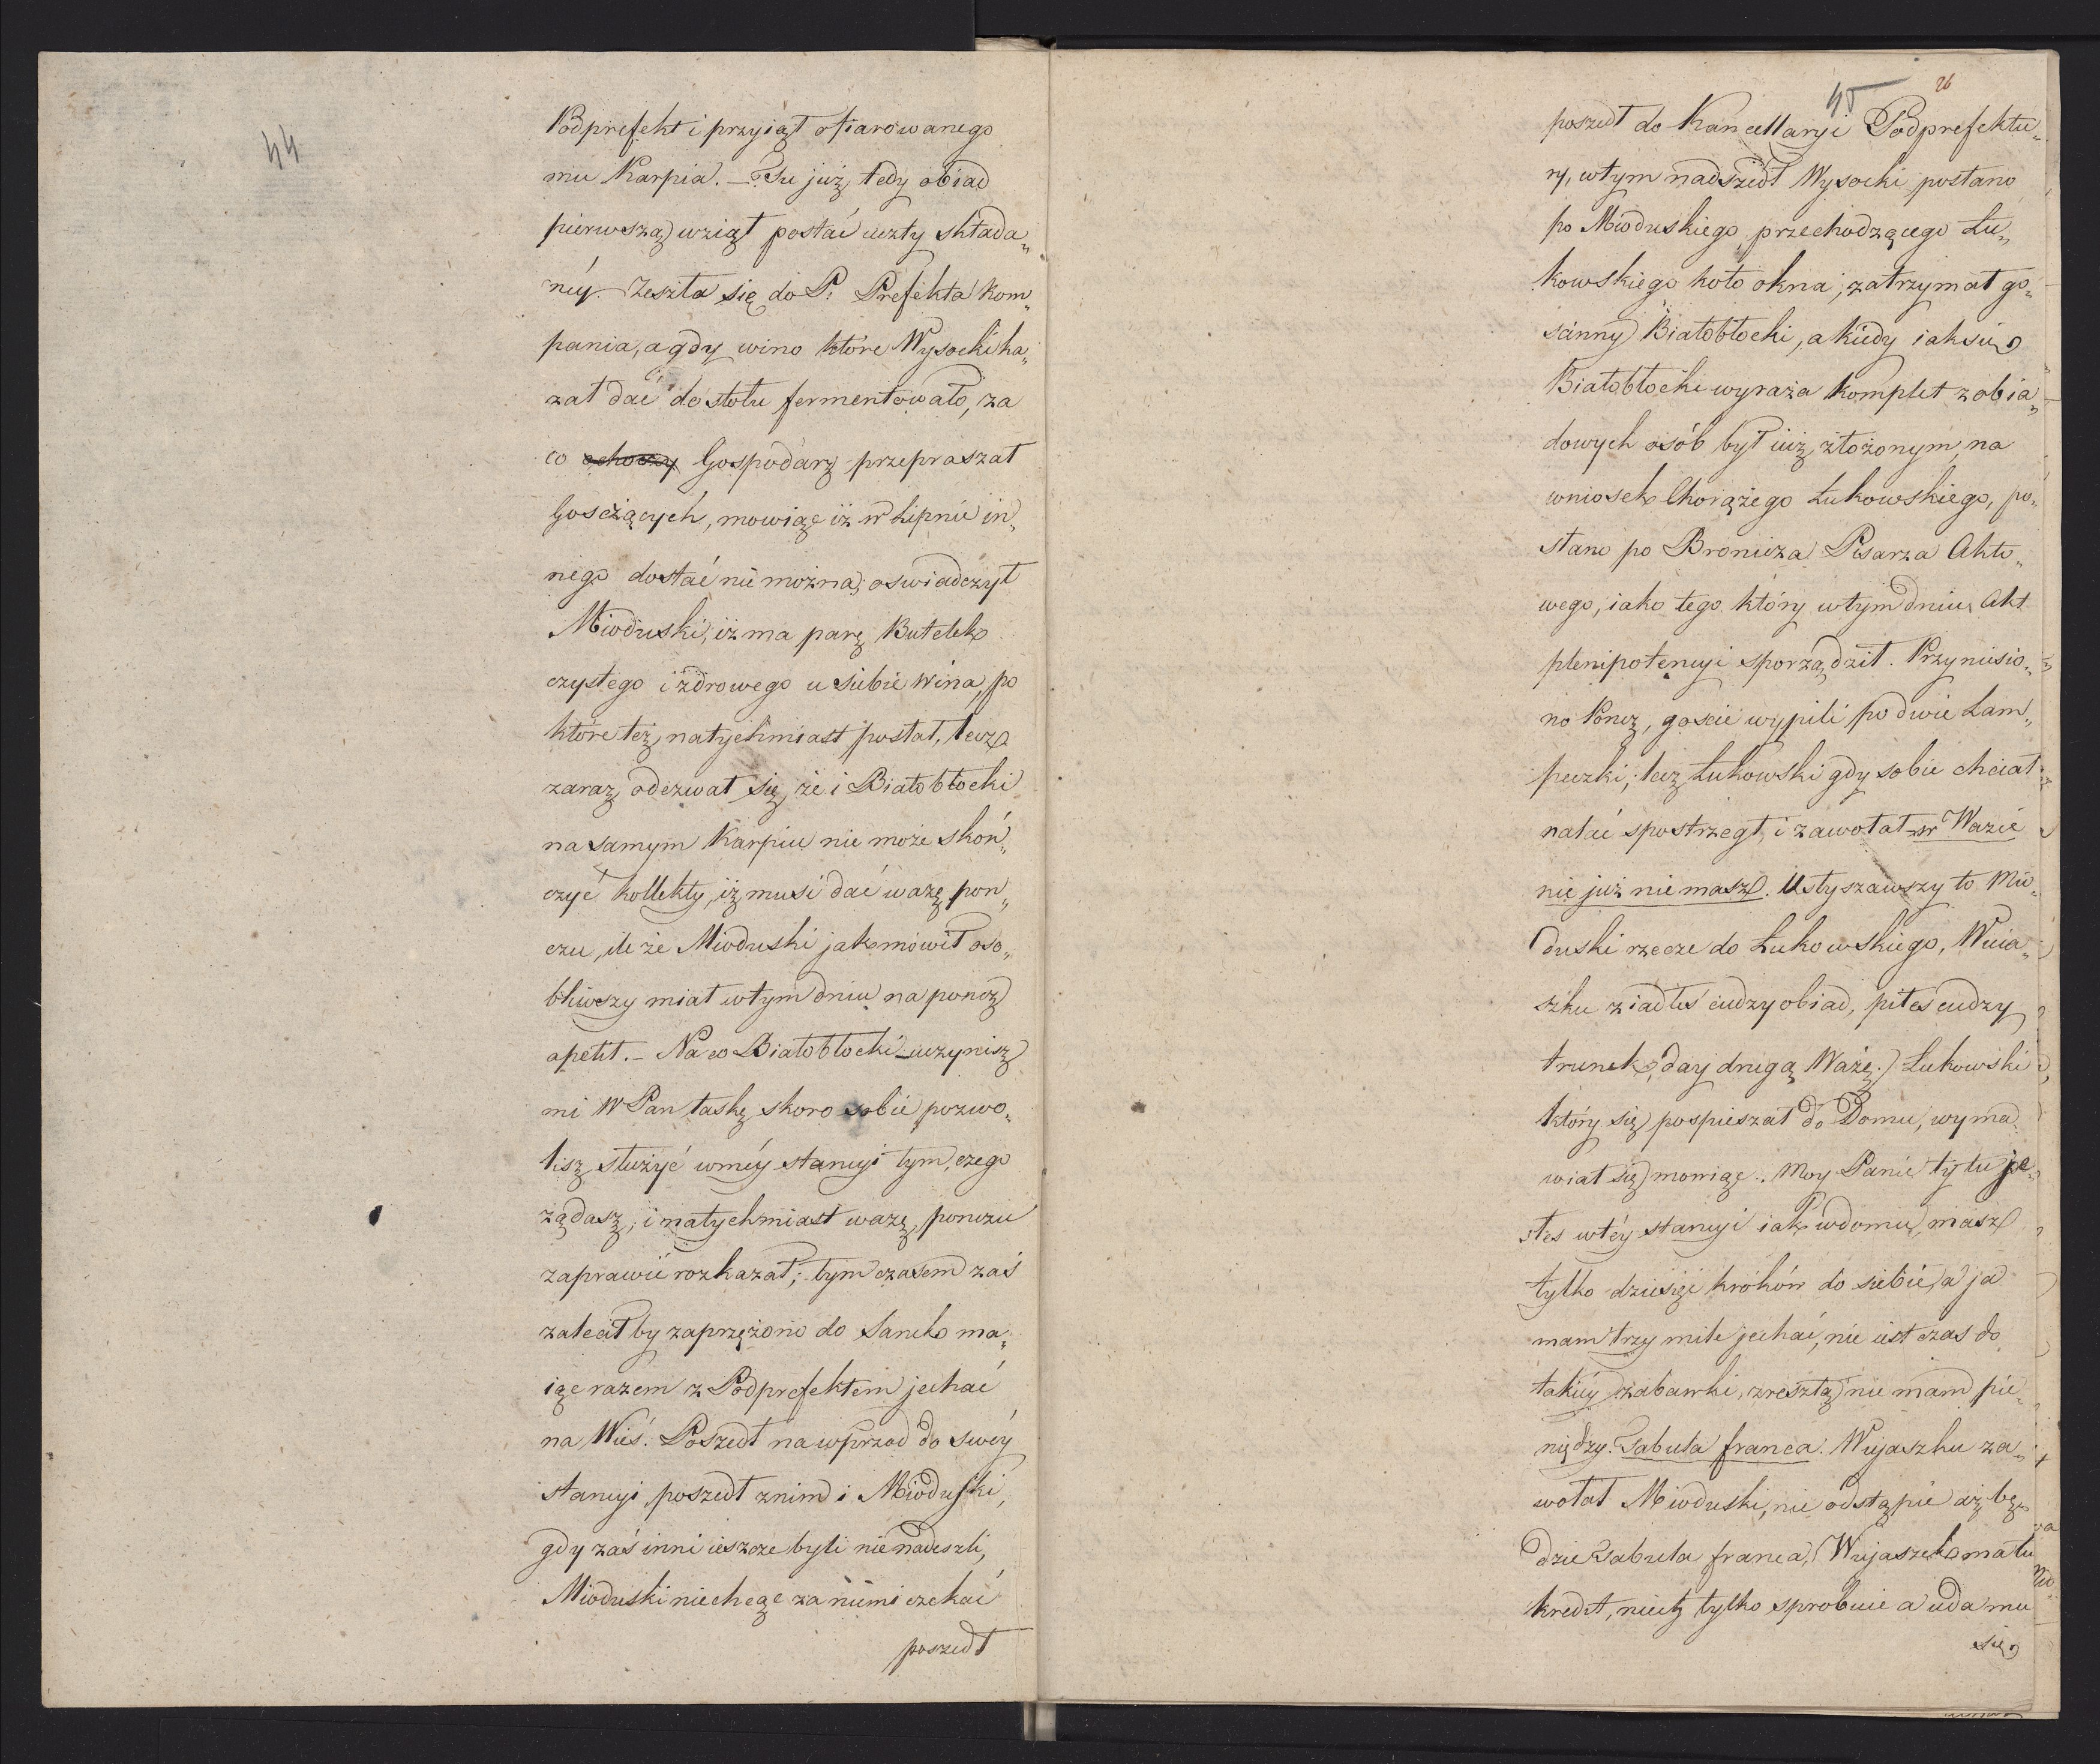 44
Podprefekt i przyiął ofiarowanego
mu Karpia. — Tu już tedy obiad
pierwszą wziął postać uczty składa„
néy. Zeszła się do P. Prefekta Kom„
pania, a gdy wino które Wysocki ka„
zał dać do stołu fermentowało, za
co ochoczy Gospodarz przepraszał
Gosczących, mowiąc iż w Lipnie in„
nego dostać nie można; oswiadczył
Mioduski, iż ma parę Butelek
czystego i zdrowego u siebie wina, po
które też natychmiast posłał, lecz
zaraz odezwał się, że i Białobłocki
na samym Karpiu nie może skoń„
czyć kollekty, iż musi dać wazę pon„
czu, ile że Mioduski jak mówił oso„
bliwszy miał w tym dniu na poncz
apetit. – Na co Białobłocki – uczynisz
mi W Pan łaskę skoro sobie pozwo„
lisz służyć w méy stancyi tym, czego
żądasz; i natychmiast wazę ponczu
zaprawić rozkazał; tym czasem zaś
zalecił by zaprzężono do Sanek ma„
iąc razem z Podprefektem jechać
na Wieś. Poszedł na wprzod do swéy
stancyi, poszedł z nim i Mioduski,
gdy zaś inni ieszcze byli nie nadeszli,
Mioduski niechcąc za niemi czekać
poszedł
45
26
poszedł do Kancellaryi Podprefektu„
ry, w tym nadszedł Wysocki posłano
po Mioduskiego, przechodzącego Łu„
kowskiego koło okna, zatrzymał go„
scinny Białobłocki, a kiedy iak się
Białobłocki wyraża komplet z obia„
dowych osób był iuż złożonym, na
wniosek Chorążego Łukowskiego, po„
słano po Bronicza Pisarza Akto„
wego, iako tego który w tym dniu Akt
plenipotencyi sporządził. Przyniesio„
no Poncz, goscie wypili po dwie Lam„
peczki; lecz Łukowski gdy sobie chciał
nalać spostrzegł, i zawołał – w Wazie
nic już nie masz. Usłyszawszy to Mio„
duski rzecze do Łukowskiego, Wuia„
szku ziadłes cudzy obiad, piłes cudzy
trunek, day drugą Wazę. Łukowski
który się pospieszał do Domu, wyma„
wiał się mowiąc. Moy Panie ty tu je„
stes w téy stancyi iak w domu, masz
tylko dziesięć kroków do siebie, a ja
mam trzy mile jechać, nie iest czas do
takiéy zabawki, zresztą nie mam pie„
niędzy. Tabula franca. Wujaszku za„
wołał Mioduski, nie odstąpie aż bę„
dzie Tabula franca, Wujaszek ma tu
kredit, niech tylko sprobuie a uda mu
się